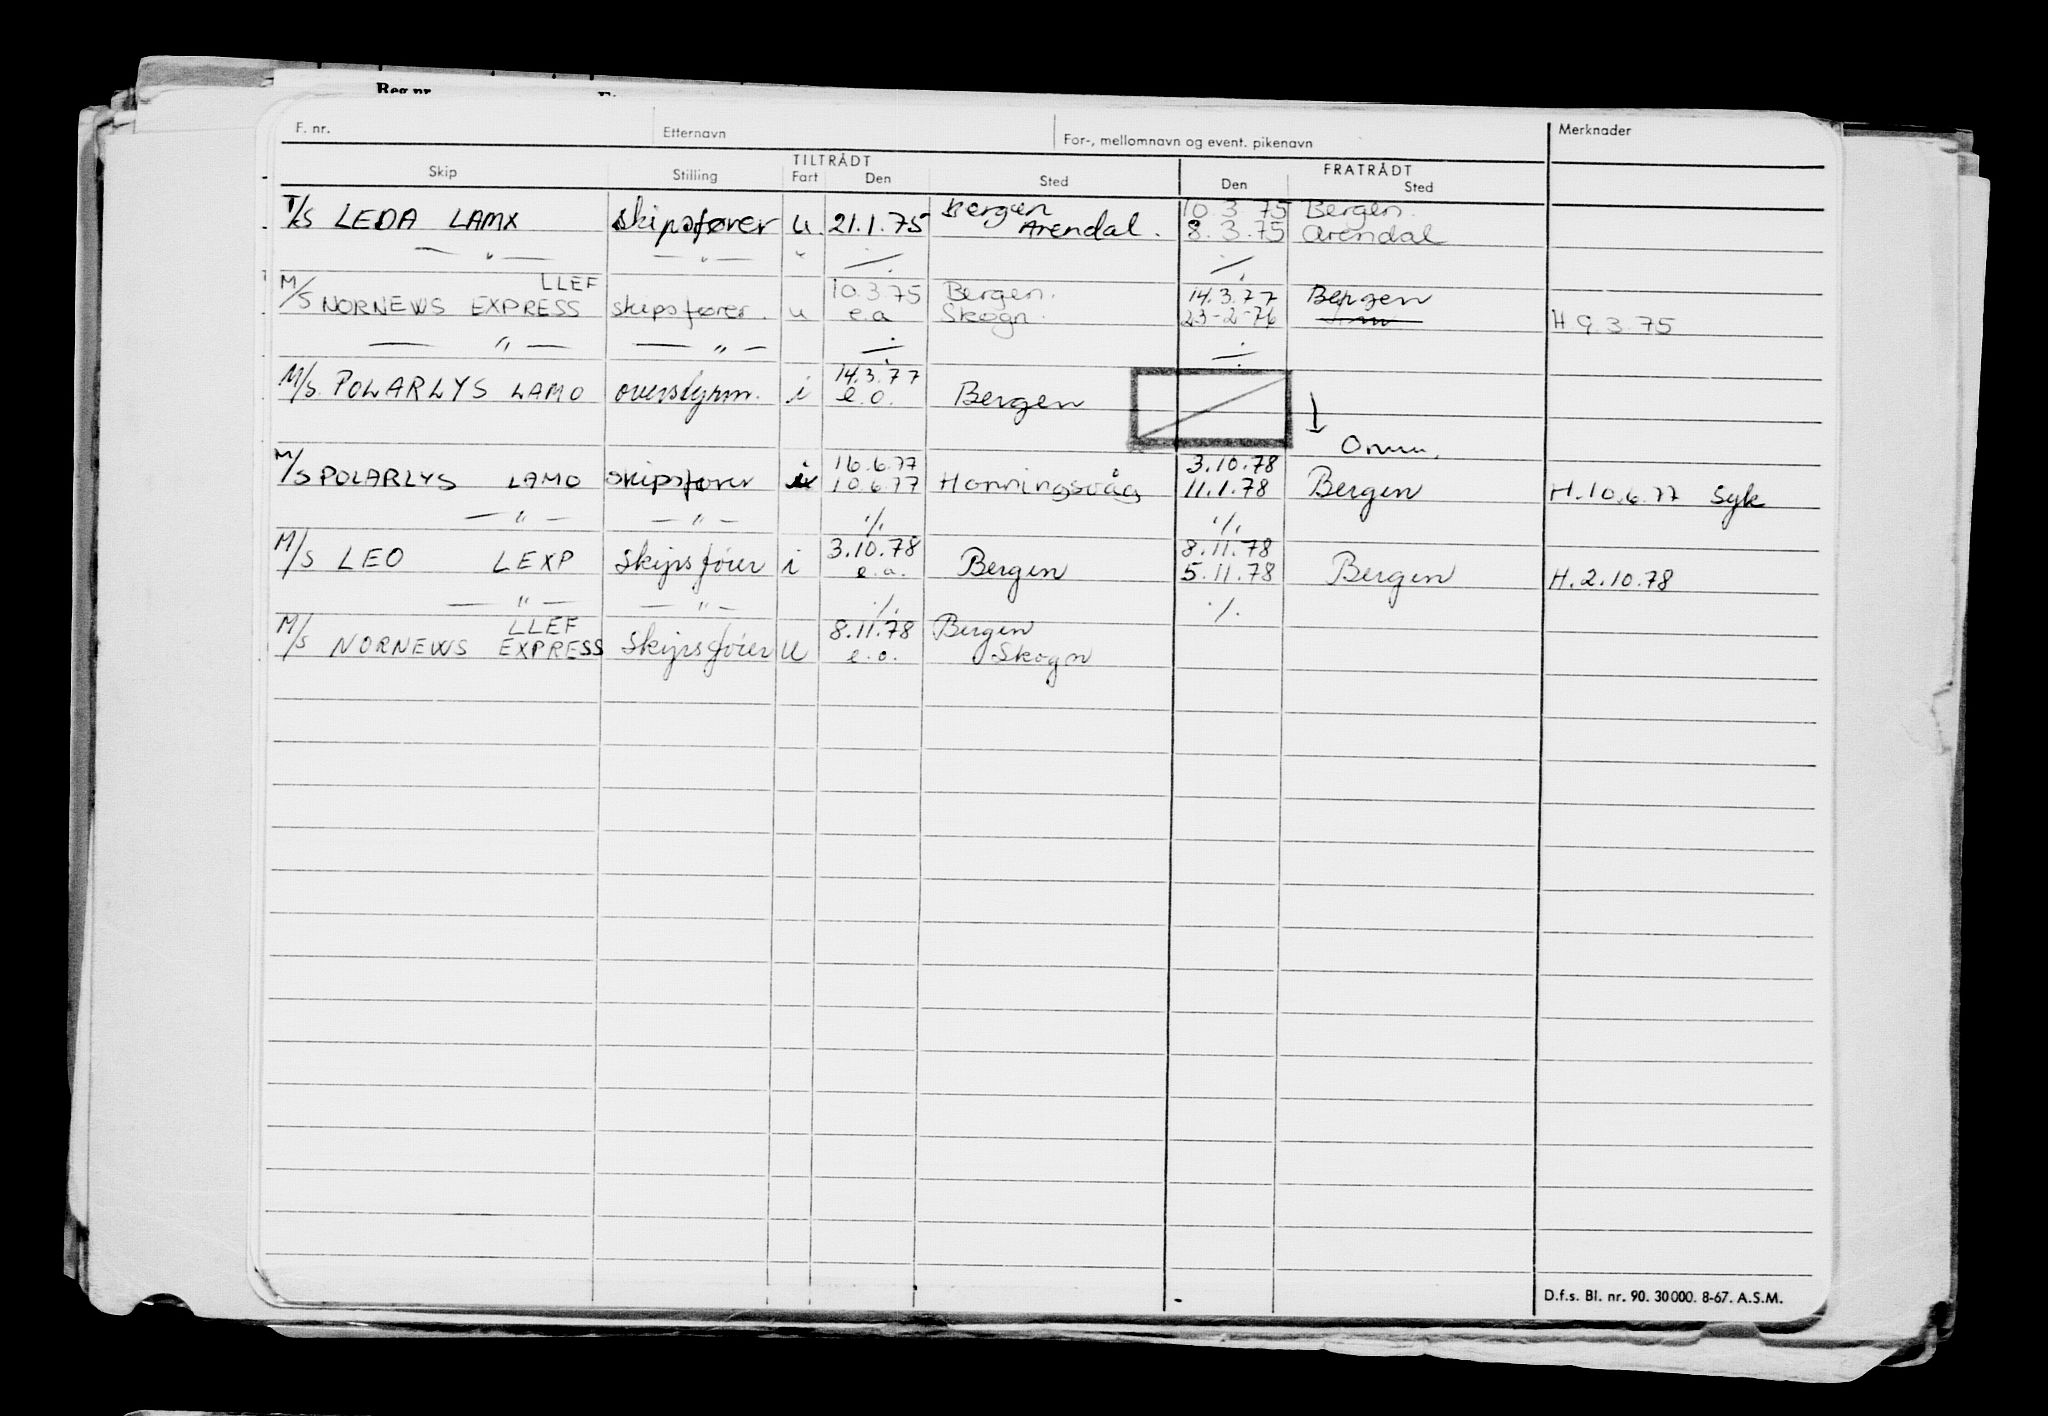 Reg.nr.
F. nr. Etternavn For-, mellomnavn og event. pikenavn Merknader
TILTRÅDT FRATRÅDT
Skip Stilling Fart Den Sted Den Sted
Bergen 10.3.75 Bergen.
T/S LEDA LAMX skipsfører u 21.1.75 Arendal. 8.3.75 Arendal
— " — — " — " ./. ./.
LLEF 10.3.75 Bergen. 14.3.77 Bergen
M/S NORNEWS EXPRESS skipsfører. u e.a Skogn. 23-2-76 H 9.3.75
— " — — " — ./. ./.
14.3.77
M/S POLARLYS LAMO overstyrm. i e.o. Bergen
16.6.77 3.10.78
M/S POLARLYS LAMO skipsfører i 10.6.77 Honningsvåg 11.1.78 Bergen H.10.6.77 Syk
— " — — " — ./. ./.
3.10.78 8.11.78
M/S LEO LEXP Skipsfører i e.a. Bergen 5.11.78 Bergen H.2.10.78
— " — — " — ./. ./.
LLEF 8.11.78 Bergen
M/S NORNEWS EXPRESS Skipsfører U e.o. Skogn
D.f.s. Bl. nr. 90. 30000. 8-67. A.S.M.